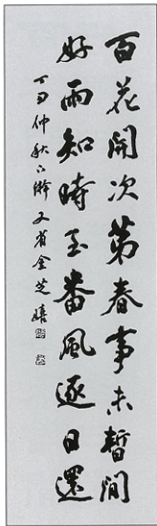 百花開次第春事未暫間
好雨知時至番風逐日還
丁丑仲秋下澣又省金芝嬉